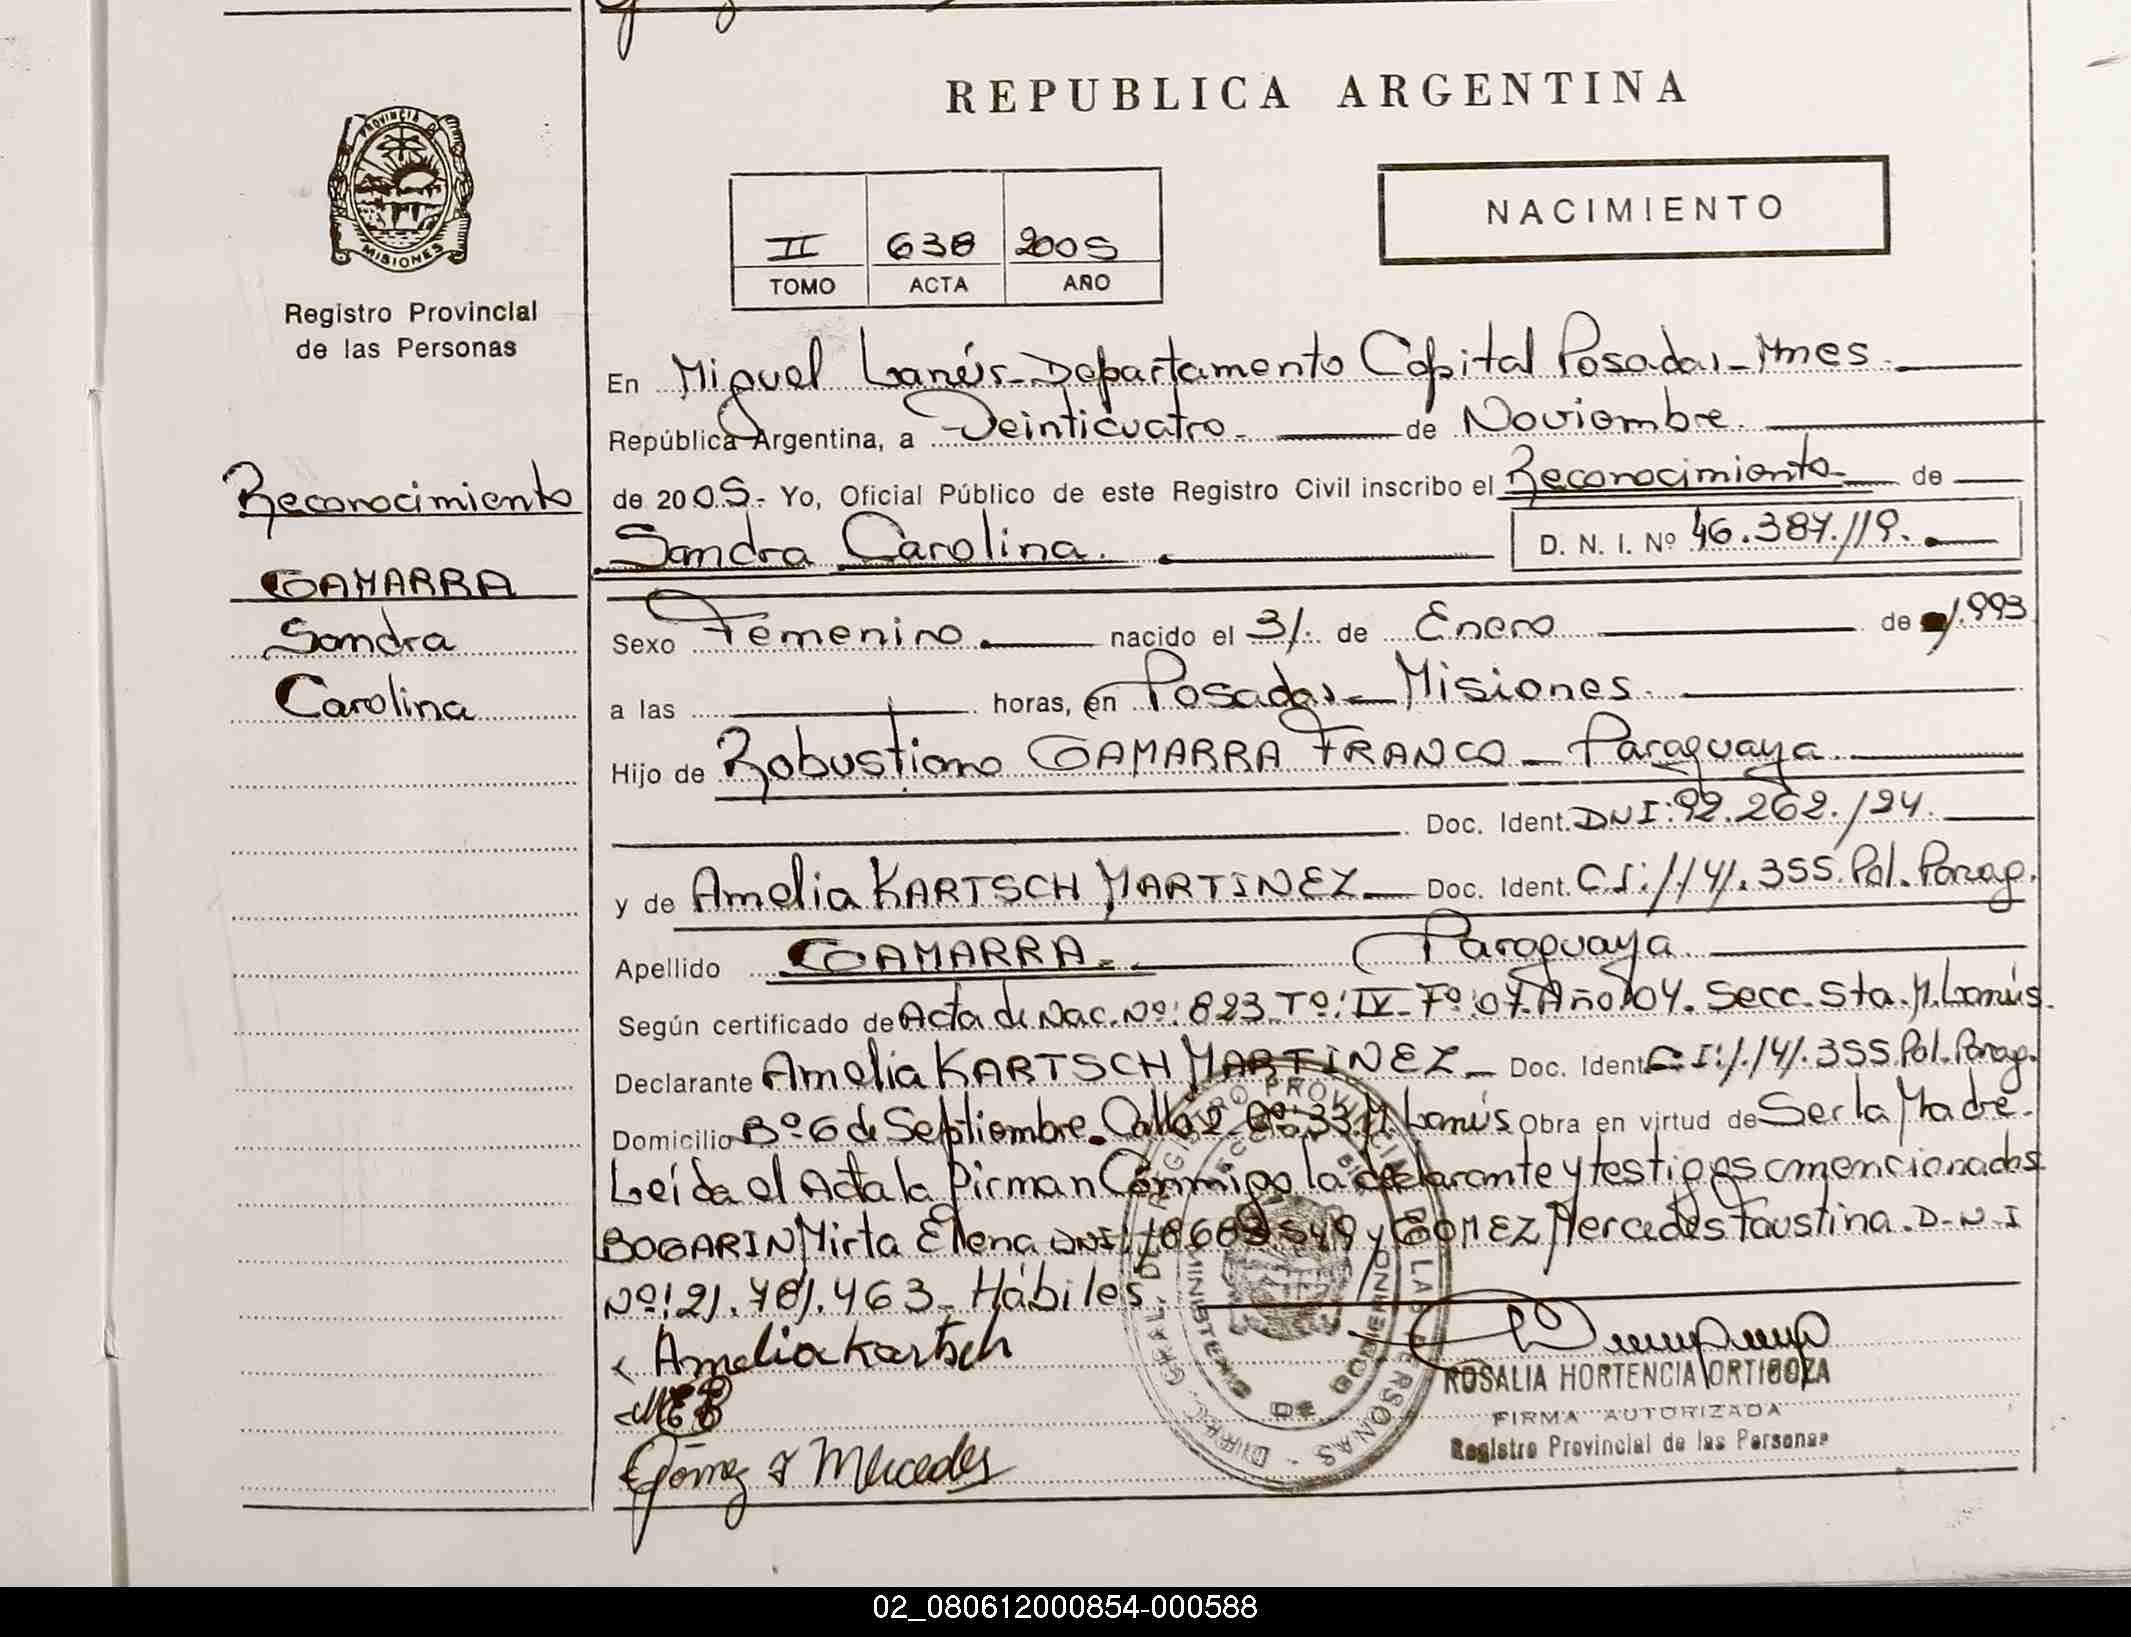 REPUBLICA ARGENTINA
PROVINCIA DE
MISIONES
Registro Provincial
de las Personas
II 638 2005
TOMO ACTA AÑO
NACIMIENTO
En Miguel Lanús - Departamento Capital Posadas - Mnes.
República Argentina, a Veinticuatro de Noviembre.
de 2005.- Yo, Oficial Público de este Registro Civil inscribo el Reconocimiento de
Sandra Carolina. D. N. I. Nº 46.387.119.
Reconocimiento
GAMARRA
Sandra
Carolina
Sexo Femenino nacido el 31. de Enero de 1.993
a las horas, en Posadas - Misiones.
Hijo de Robustiano GAMARRA FRANCO - Paraguaya.
Doc. Ident. DNI: 92.262.124.
y de Amelia KARTSCH MARTINEZ - Doc. Ident. C.I: 1.141.355. Pol. Parag.
Apellido GAMARRA. Paraguaya
Según certificado de Acta de Nac. Nº: 823 - Tº: IV - Fº: 07. Año 04. Secc. Sta. M. Lanús.
Declarante Amelia KARTSCH MARTINEZ - Doc. Ident. C.I: 1.141.355. Pol. Parag.
Domicilio Bº 6 de Septiembre. Calle 33 M. Lanús Obra en virtud de Ser la Madre.
Leída el Acta la firman Conmigo la declarante y testigos mencionados
BOGARIN Mirta Elena DNI: y GOMEZ Mercedes Faustina. D-N-I
Nº: 21.781.463 - Hábiles.
Amelia Kartsch
MEB
Gómez F Mercedes
ROSALIA HORTENCIA ORTIGOZA
FIRMA AUTORIZADA
Registro Provincial de las Personas
02_080612000854-000588